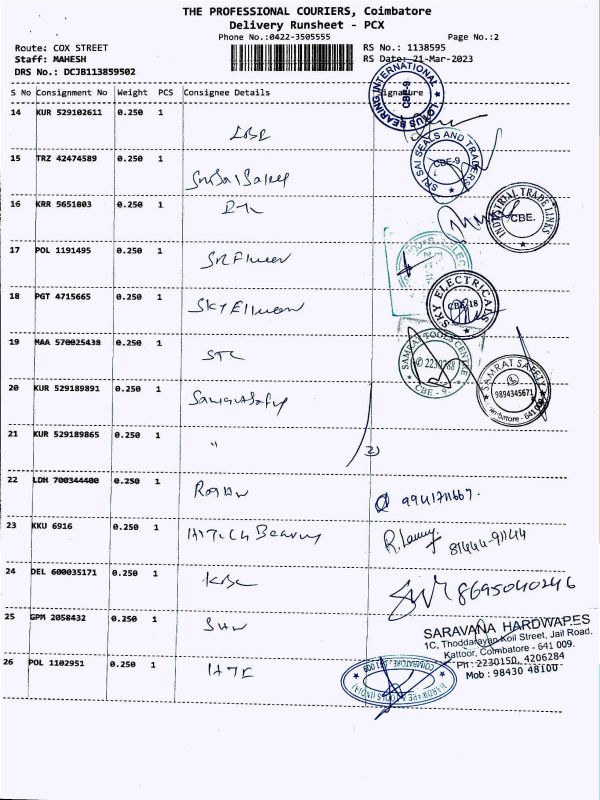 THE PROFESSIONAL COURIERS, Coimbatore
Delivery Runsheet - PCX
Phone No.:0422-3505555 Page No.:2
Route: COX STREET RS No.: 1138595
Staff: MAHESH RS Date: 21-Mar-2023
DRS No.: DCJB113859502
S No Consignment No Weight PCS Consignee Details Signature
LOTUS BEARING INTERNATIONAL CBE-9
14 KUR 529102611 0.250 1
15 TRZ 42474589 0.250 1
SRI SAI SEALS AND TRADERS CBE-9
16 KRR 5651803 0.250 1
INDUSTRIAL TRADE LINKS CBE.
17 POL 1191495 0.250 1
18 PGT 4715665 0.250 1
SKY ELECTRICALS CBE-18
19 MAA 570025438 0.250 1 STC
SAMRAT TOOLS CENTRE 2230768 CBE - 9.
20 KUR 529189891 0.250 1
SAMRAT SAFETY 9894345671
21 KUR 529189865 0.250 1 "
2)
22 LDH 700344400 0.250 1
23 KKU 6916 0.250 1 HITECH Bearing 81444-91144
24 DEL 600035171 0.250 1 KBC 8695040246
25 GPM 2058432 0.250 1
SARAVANA HARDWARES
1C, Thoddarayan Koil Street, Jail Road,
Kattoor, Coimbatore - 641 009.
Ph : 2230150, 4206284
Mob : 98430 48100
26 POL 1102951 0.250 1